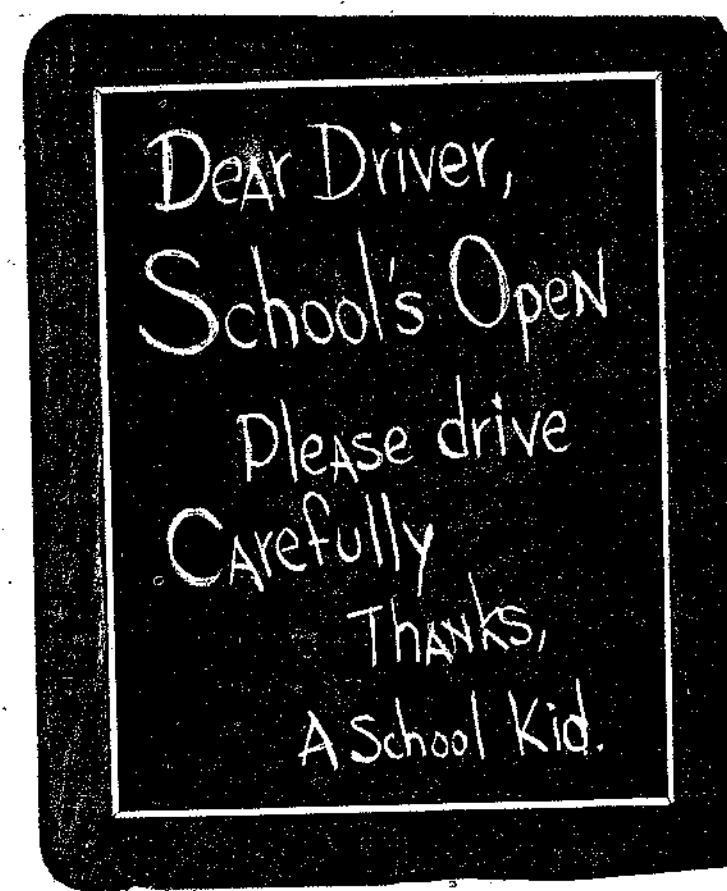 Dear Driver,
School's Open
Please drive
Carefully
Thanks,
A School Kid.